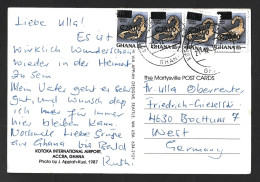 Liebe Ulla!
Es ist
wirklich wunderschön
wieder in der Heimat
zu sein
Mein Vater geht es sehr
gut, und
ich hier für immer
hier bleiben kann.
Nochmals liebe Grüße
aus Ghana bis bald
Ruth.
KOTOKA INTERNATIONAL AIRPORT,
ACCRA, GHANA
Photo by J. Appiah-Kusi, 1987
GHANA
GHANA
GHANA
GHANA
The Martysville POST CARDS
Fr. Ulla Oberreuter
4630 Bochum 7
West
Germany